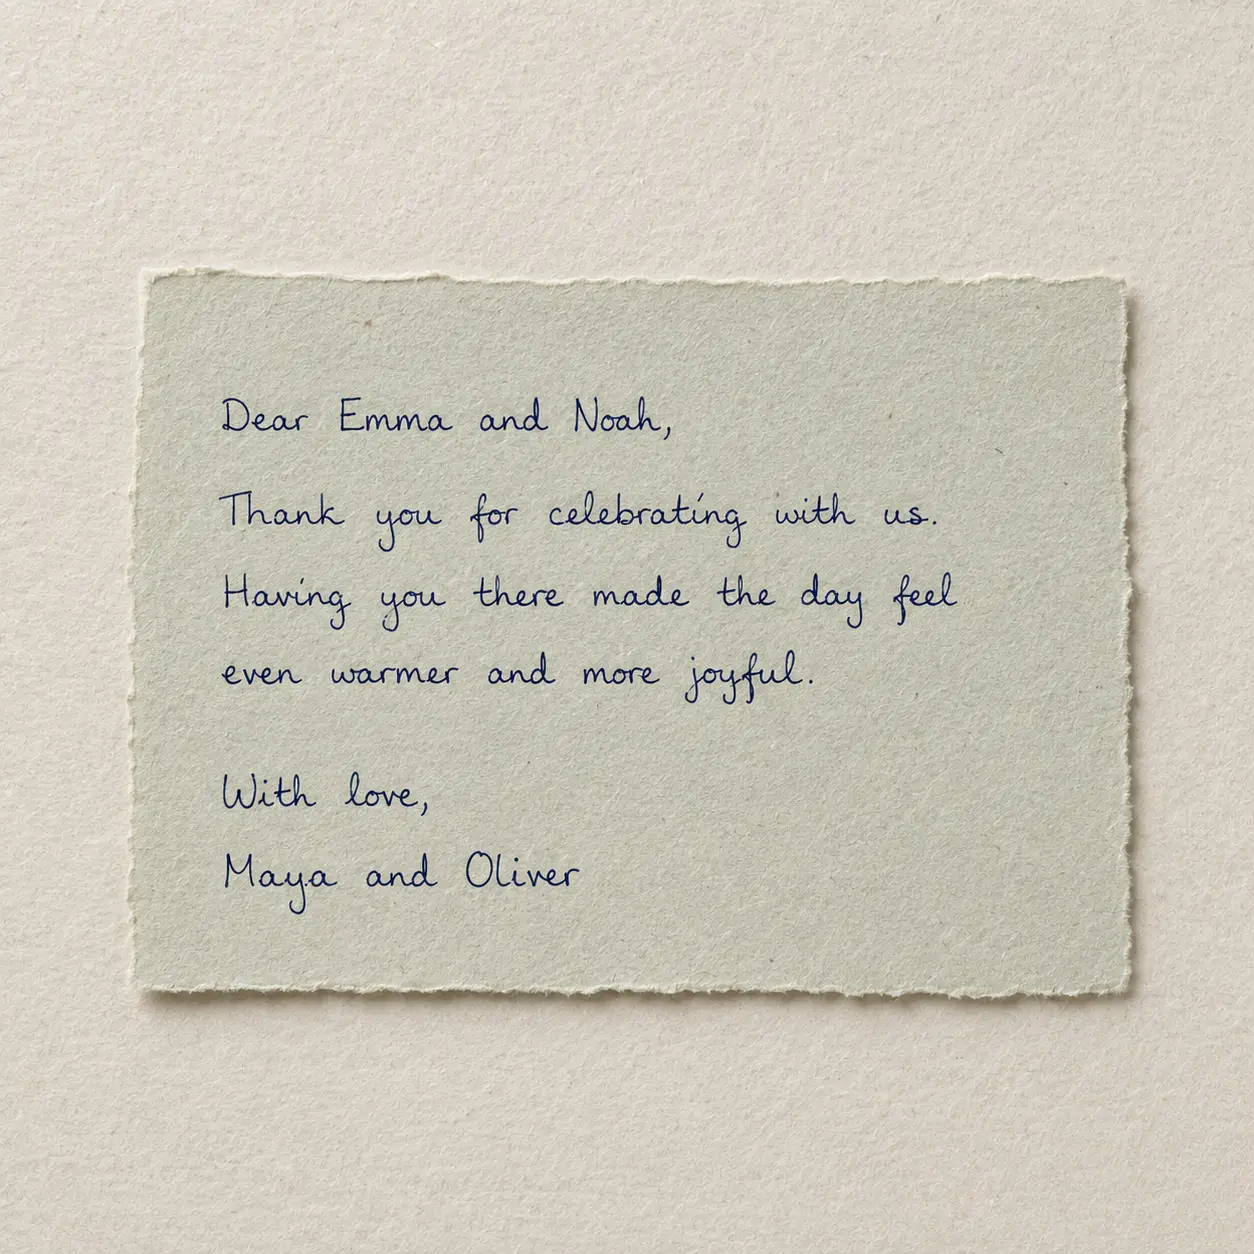 Dear Emma and Noah,
Thank you for celebrating with us.
Having you there made the day feel
even warmer and more joyful.
With love,
Maya and Oliver